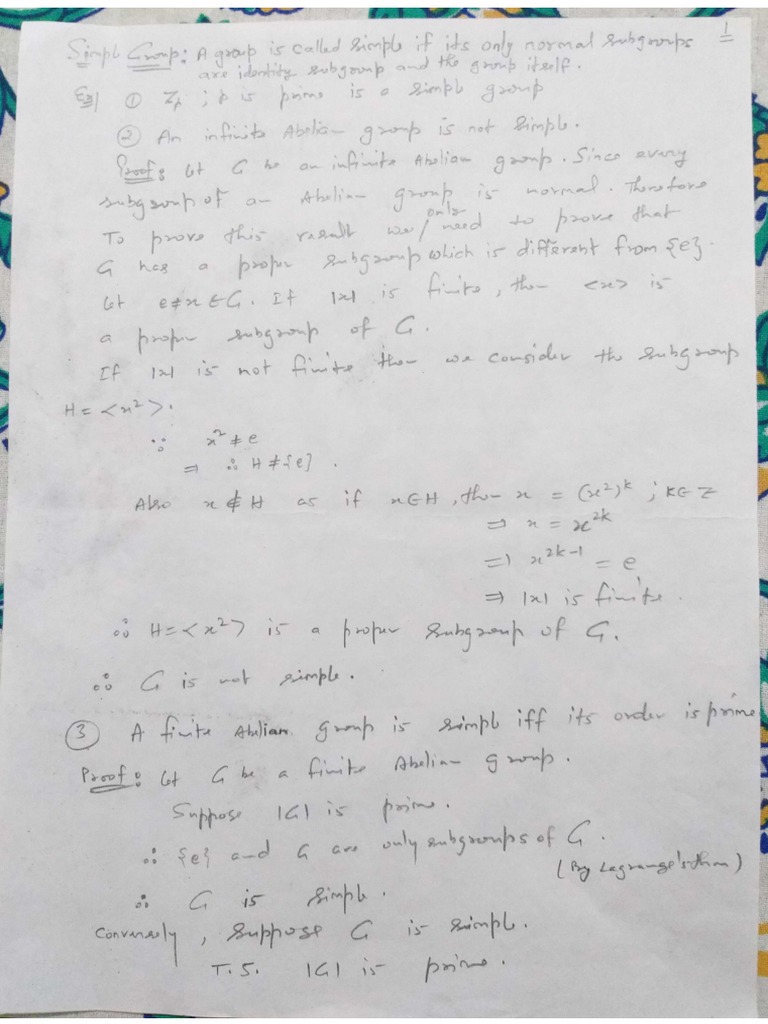 1
Simple Group: A group is called simple if its only normal subgroups
are identity subgroup and the group itself.
Eg/ ① Zp ; p is prime is a simple group
② An infinite Abelian group is not simple.
Proof: Let G be an infinite Abelian group. Since every
subgroup of an Abelian group is normal. Therefore
To prove this result we only need to prove that
G has a proper subgroup which is different from {e}.
Let e≠x∈G. If |x| is finite, then <x> is
a proper subgroup of G.
If |x| is not finite then we consider the subgroup
H = <x²>.
∵ x² ≠ e
⇒ ∴ H ≠ {e}.
Also x ∉ H as if x∈H, then x = (x²)ᵏ ; k∈Z
⇒ x = x²ᵏ
⇒ x²ᵏ⁻¹ = e
⇒ |x| is finite.
∴ H = <x²> is a proper subgroup of G.
∴ G is not simple.
③ A finite Abelian group is simple iff its order is prime
Proof: Let G be a finite Abelian group.
Suppose |G| is prime.
∴ {e} and G are only subgroups of G.
(By Lagrange's thm)
∴ G is simple.
Conversely, suppose G is simple.
T.S. |G| is prime.